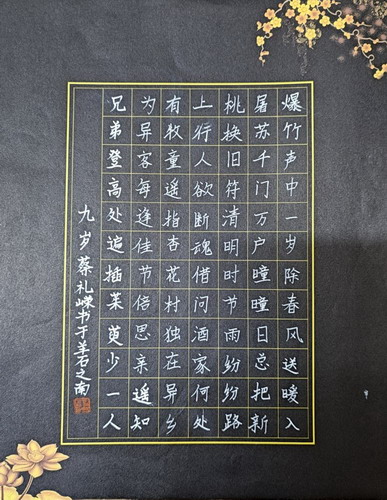 爆竹声中一岁除春风送暖入
屠苏千门万户曈曈日总把新
桃换旧符清明时节雨纷纷路
上行人欲断魂借问酒家何处
有牧童遥指杏花村独在异乡
为异客每逢佳节倍思亲遥知
兄弟登高处遍插茱萸少一人
九岁蔡礼嵘书于羊石之南